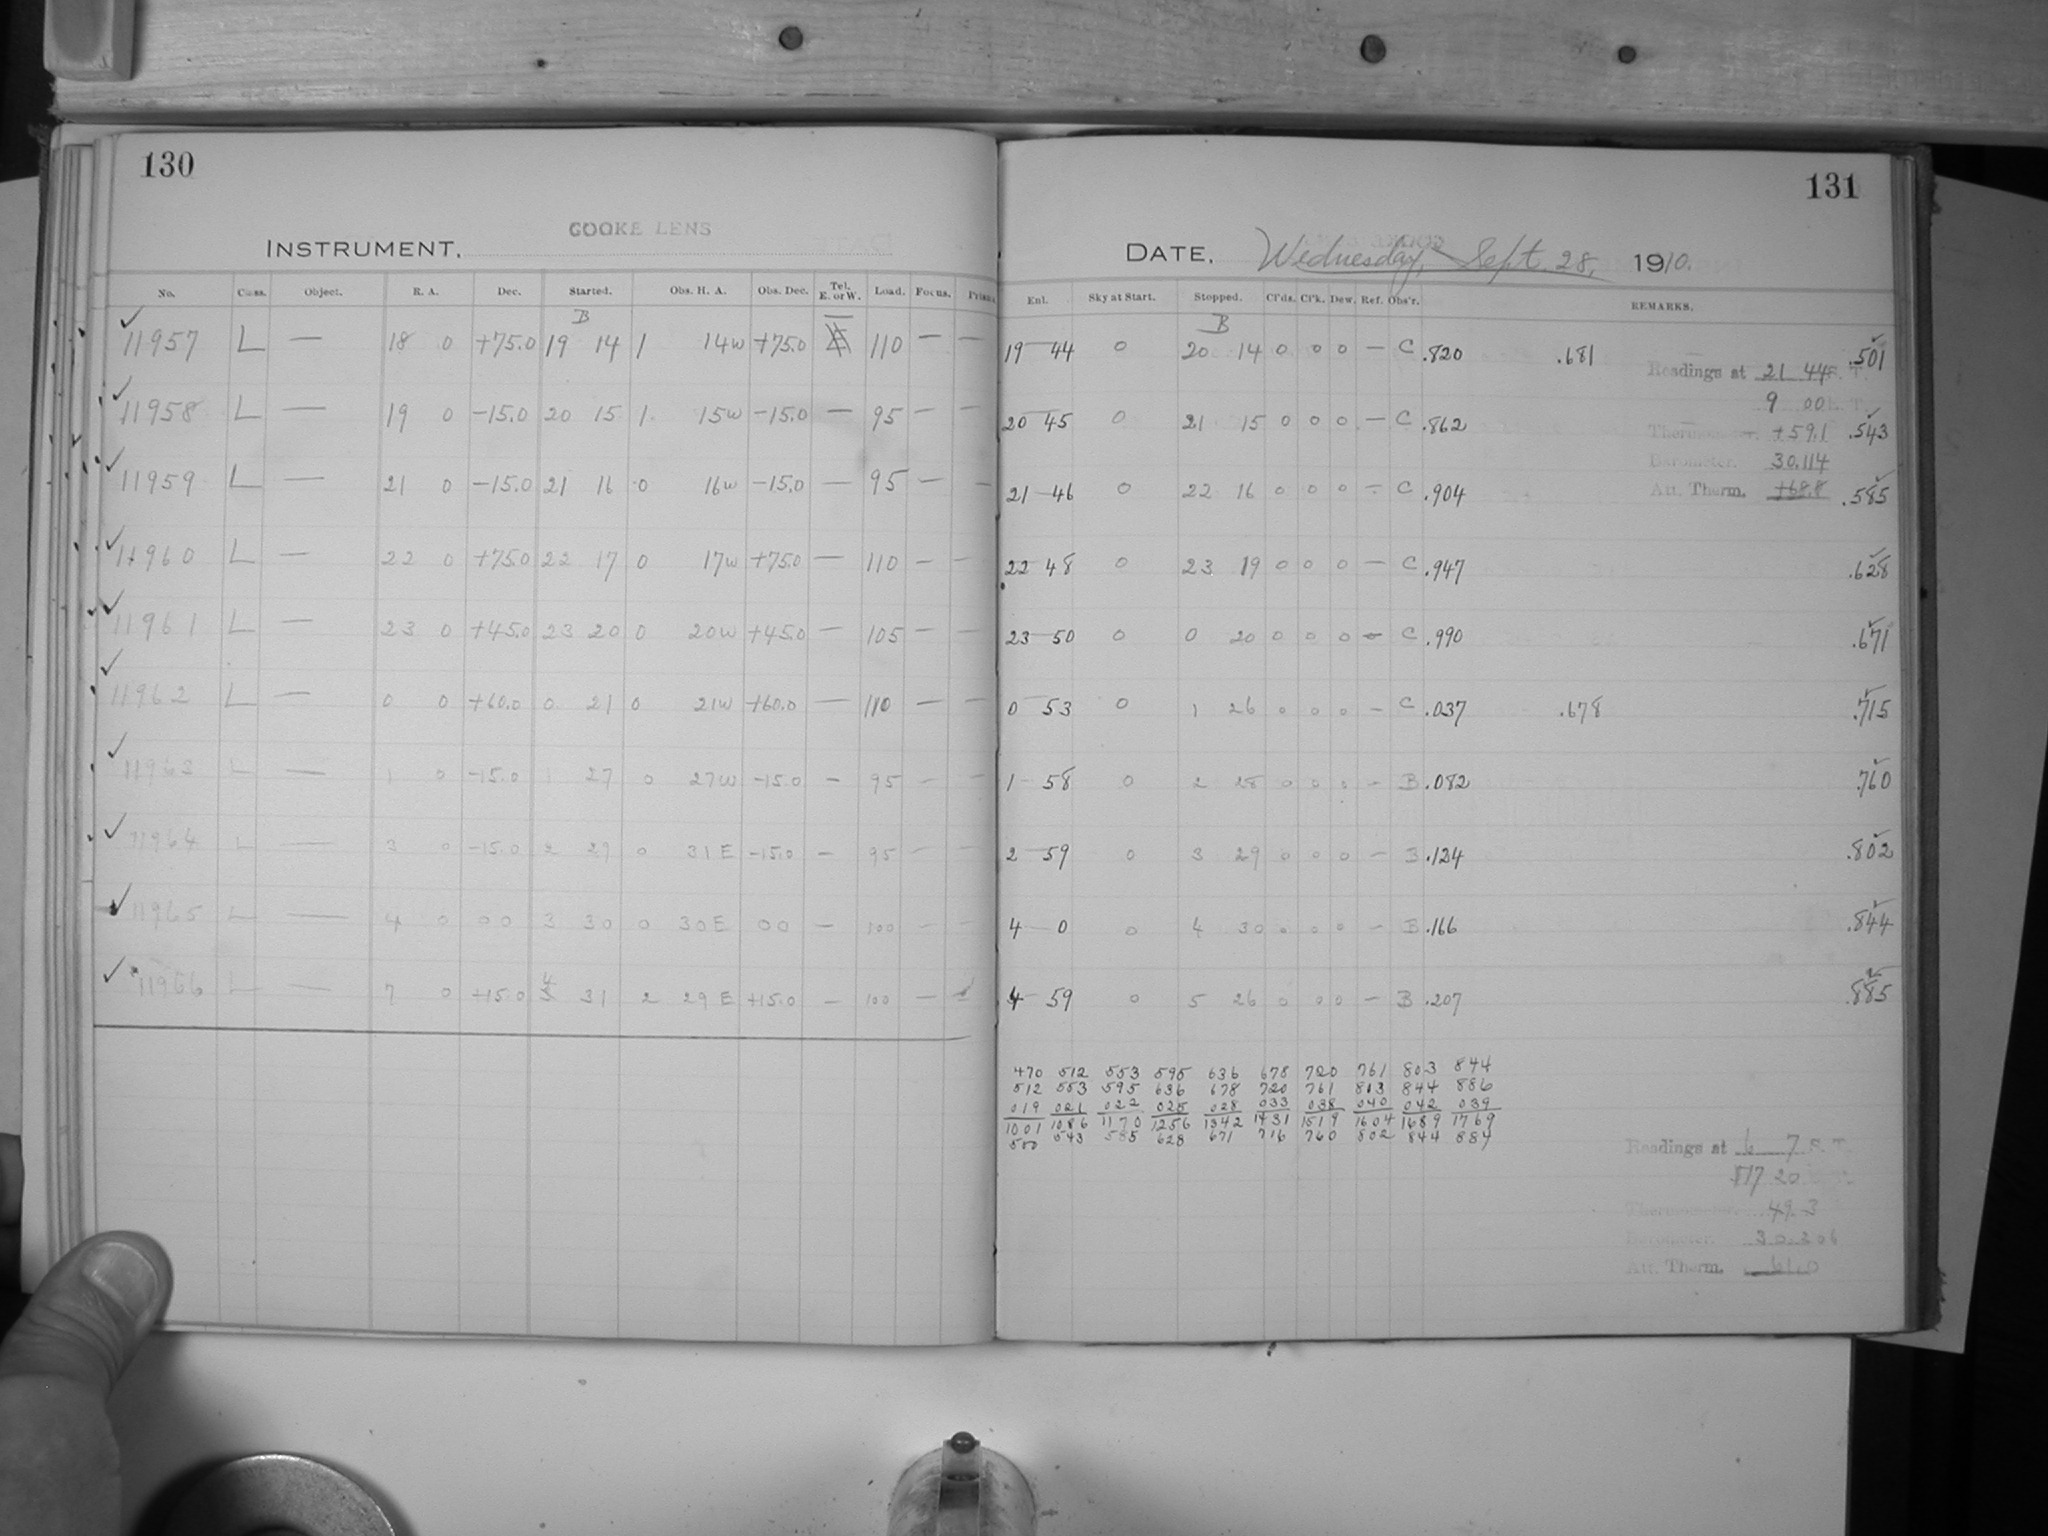 130
COOKE LENS
INSTRUMENT.
No. Class. Object. R. A. Dec. Started. Obs. H. A. Obs. Dec. Tel. E. or W. Load. Focus.
B
11957 L — 18 0 +75.0 19 14 1 14w +75.0 110 — —
11958 L — 19 0 -15.0 20 15 1 15w -15.0 — 95 — —
11959 L — 21 0 -15.0 21 16 0 16w -15.0 — 95 — —
11960 L — 22 0 +75.0 22 17 0 17w +75.0 — 110 — —
11961 L — 23 0 +45.0 23 20 0 20w +45.0 — 105 — —
11962 L — 0 0 +60.0 0 21 0 21w +60.0 — 110 — —
11963 L — 1 0 -15.0 1 27 0 27w -15.0 — 95 — —
11964 L — 3 0 -15.0 2 29 0 31 E -15.0 — 95 — —
11965 L — 4 0 00 3 30 0 30 E 00 — 100 — —
11966 L — 7 0 +15.0 4 31 2 29 E +15.0 — 100 —
131
DATE. Wednesday, Sept. 28, 1910.
Enl. Sky at Start. Stopped. Cl'ds. Cl'k. Dew. Ref. Obs'r. REMARKS.
B
19 44 0 20 14 0 0 0 — C .820 .681 .501
Readings at 21 44 S. T.
9 00
20 45 0 21 15 0 0 0 — C .862 .543
Thermometer. +59.1
Barometer. 30.114
21 46 0 22 16 0 0 0 — C .904 .585
Att. Therm. +68.8
22 48 0 23 19 0 0 0 — C .947 .628
23 50 0 0 20 0 0 0 — C .990 .671
0 53 0 1 26 0 0 0 — C .037 .678 .715
1 58 0 2 28 0 0 0 — B .082 .760
2 59 0 3 29 0 0 0 — B .124 .802
4 0 0 4 30 0 0 0 — B .166 .844
4 59 0 5 26 0 0 0 — B .207 .885
470 512 553 595 636 678 720 761 803 844
512 553 595 636 678 720 761 803 844 886
019 021 022 025 028 033 038 040 042 039
1001 1086 1170 1256 1342 1431 1519 1604 1689 1769
500 543 585 628 671 716 760 802 844 884
Readings at 6 7 S. T.
17 20
Thermometer. 49.3
Barometer. 30.206
Att. Therm. 61.0